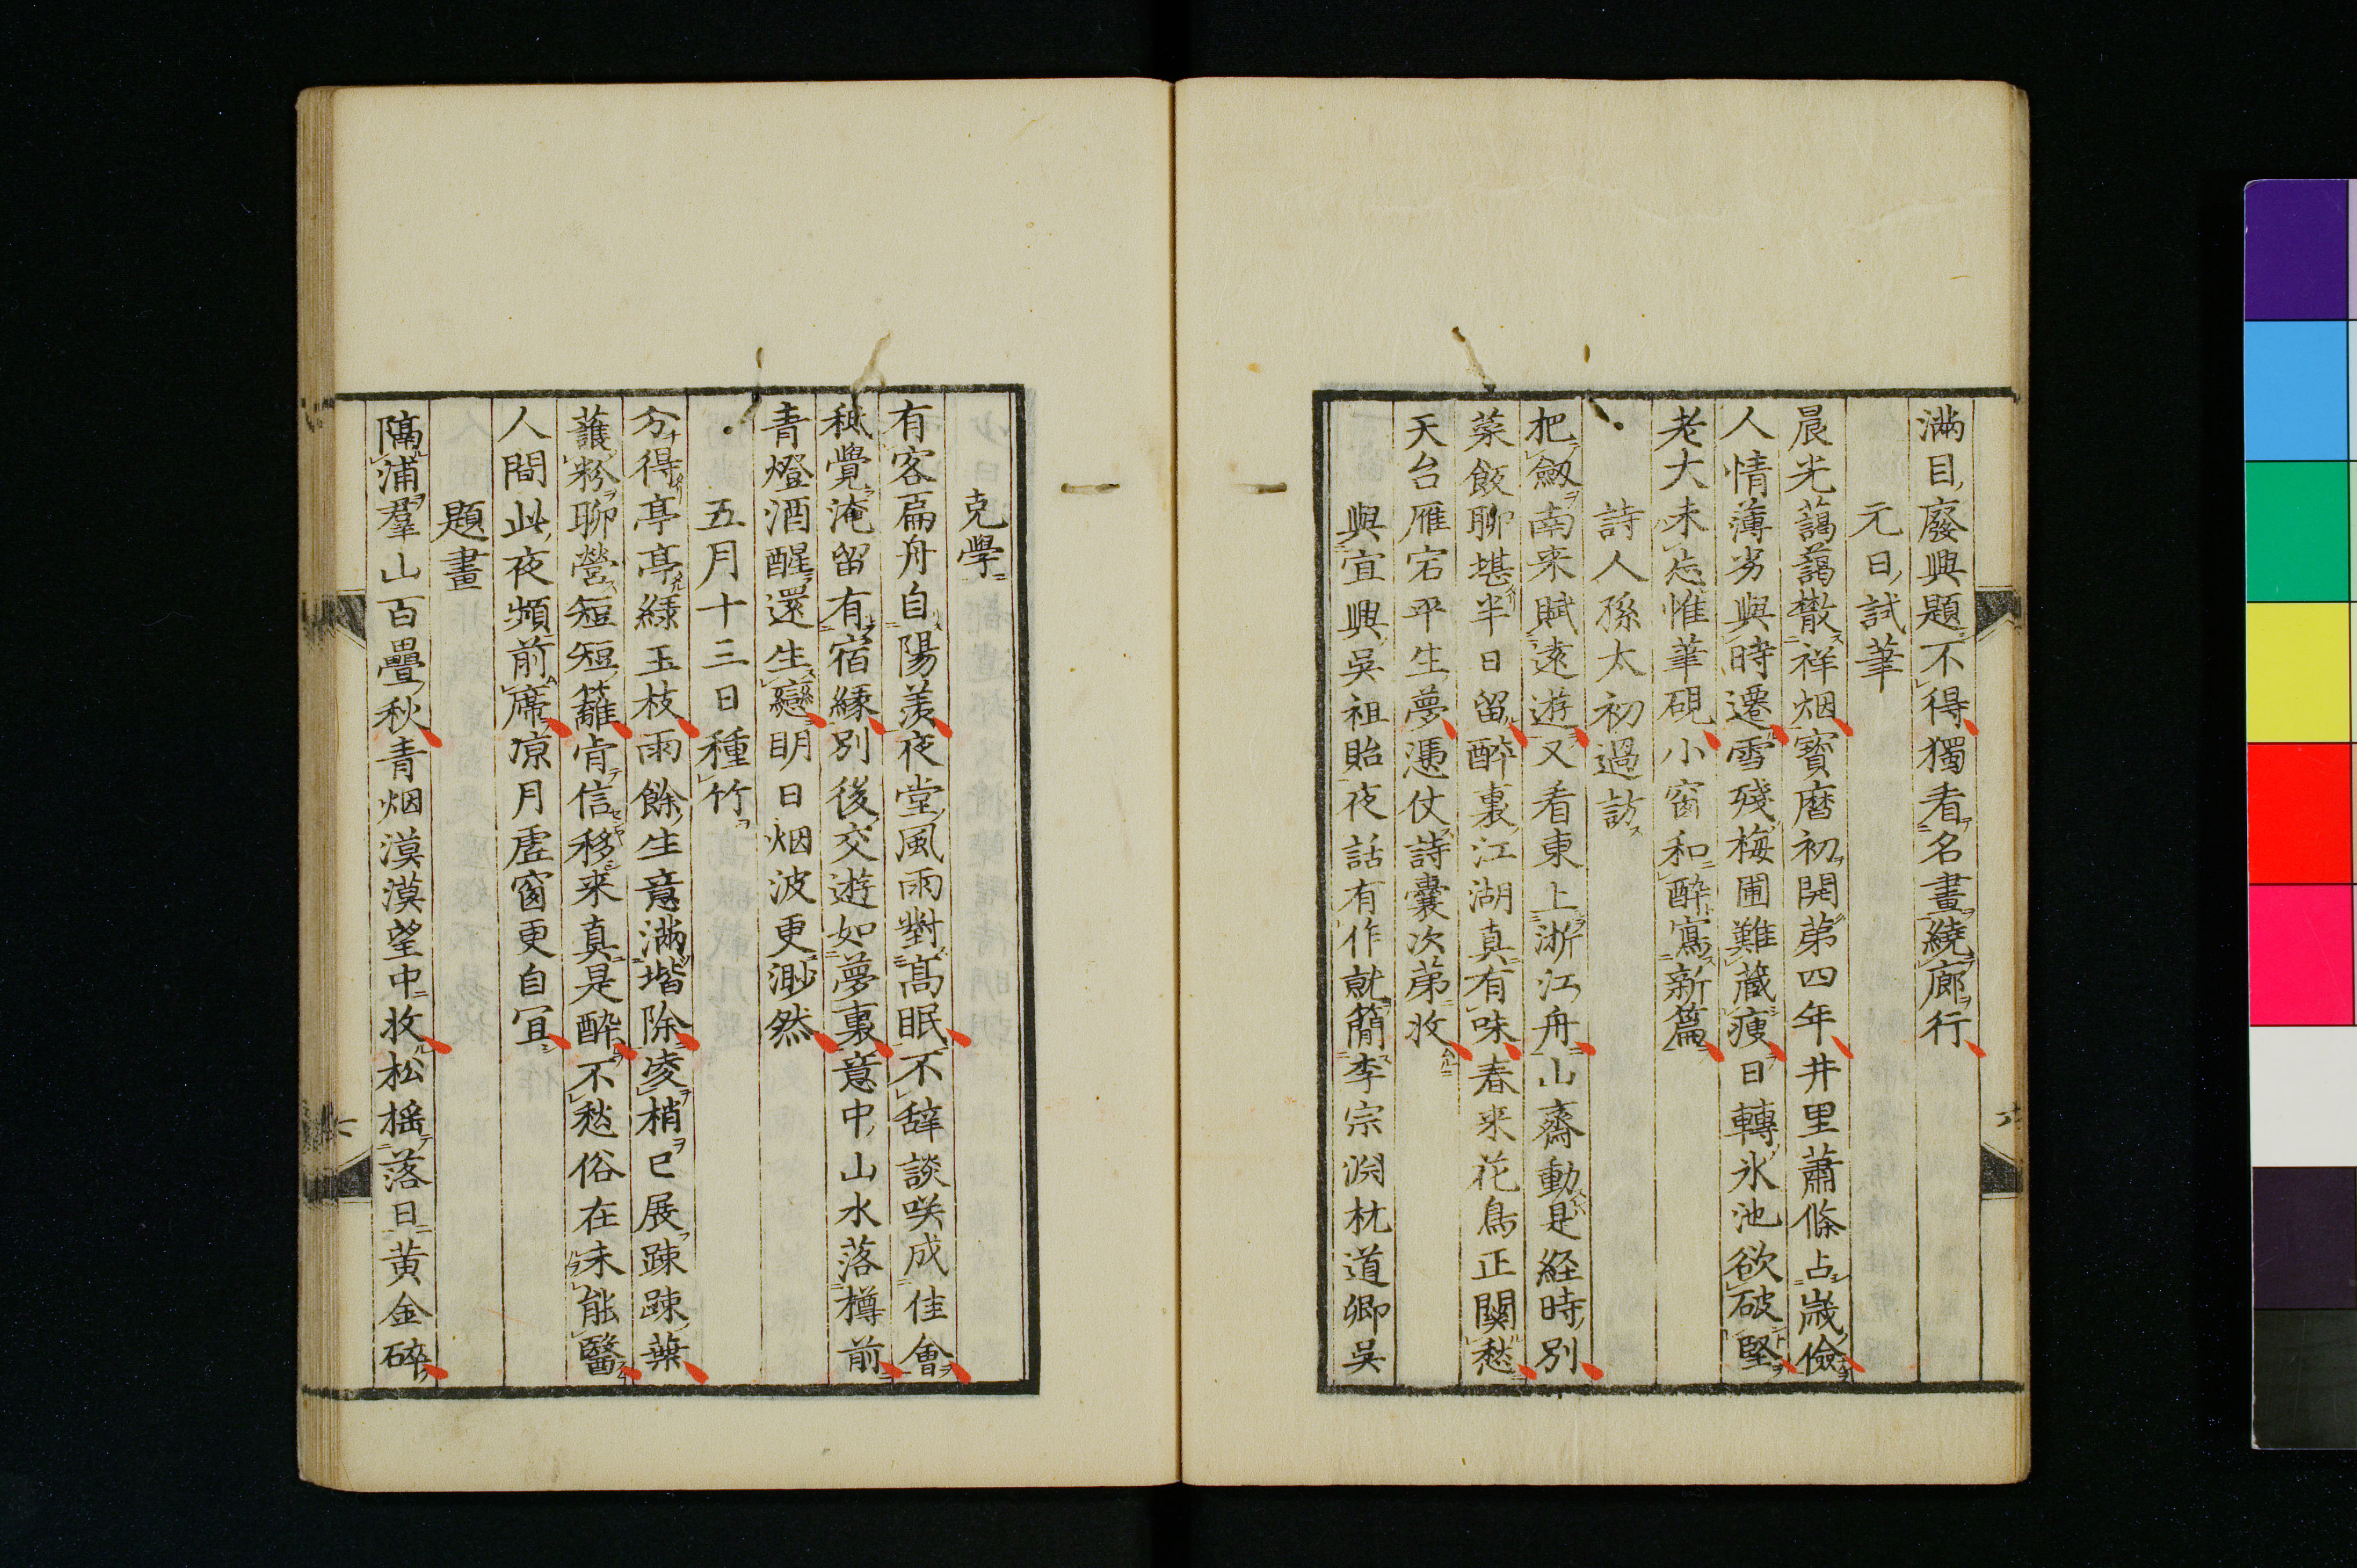 滿目廢興題不得獨看名畫繞廊行
元日試筆
晨光藹藹散祥烟寶曆初開第四年井里蕭條占歲儉
人情薄劣與時遷雪殘梅圃難藏瘦日轉氷池欲破堅
老大未忘惟筆硯小窗和醉寫新篇
詩人孫太初過訪
把劔南来賦遠遊又看東上浙江舟山齋動是経時別
菜飯聊堪半日留醉裏江湖真有味春来花鳥正關愁
天台雁宕平生夢憑仗詩囊次第收
與宜興吳祖貽夜話有作就簡李宗淵杜道卿吳
克學
有客扁舟自陽羡夜堂風雨對高眠不辞談咲成佳會
秪覺淹留有宿緣別後交遊如夢裏意中山水落樽前
青燈酒醒還生戀明日烟波更渺然
五月十三日種竹
分得亭亭綠玉枝雨餘生意滿堦除凌梢已展踈踈葉
護粉聊營短短籬肯信移来真是醉不愁俗在未能醫
人間此夜頻前席凉月虛窗更自宜
題畫
隔浦羣山百疊秋青烟漠漠望中收松搖落日黃金碎